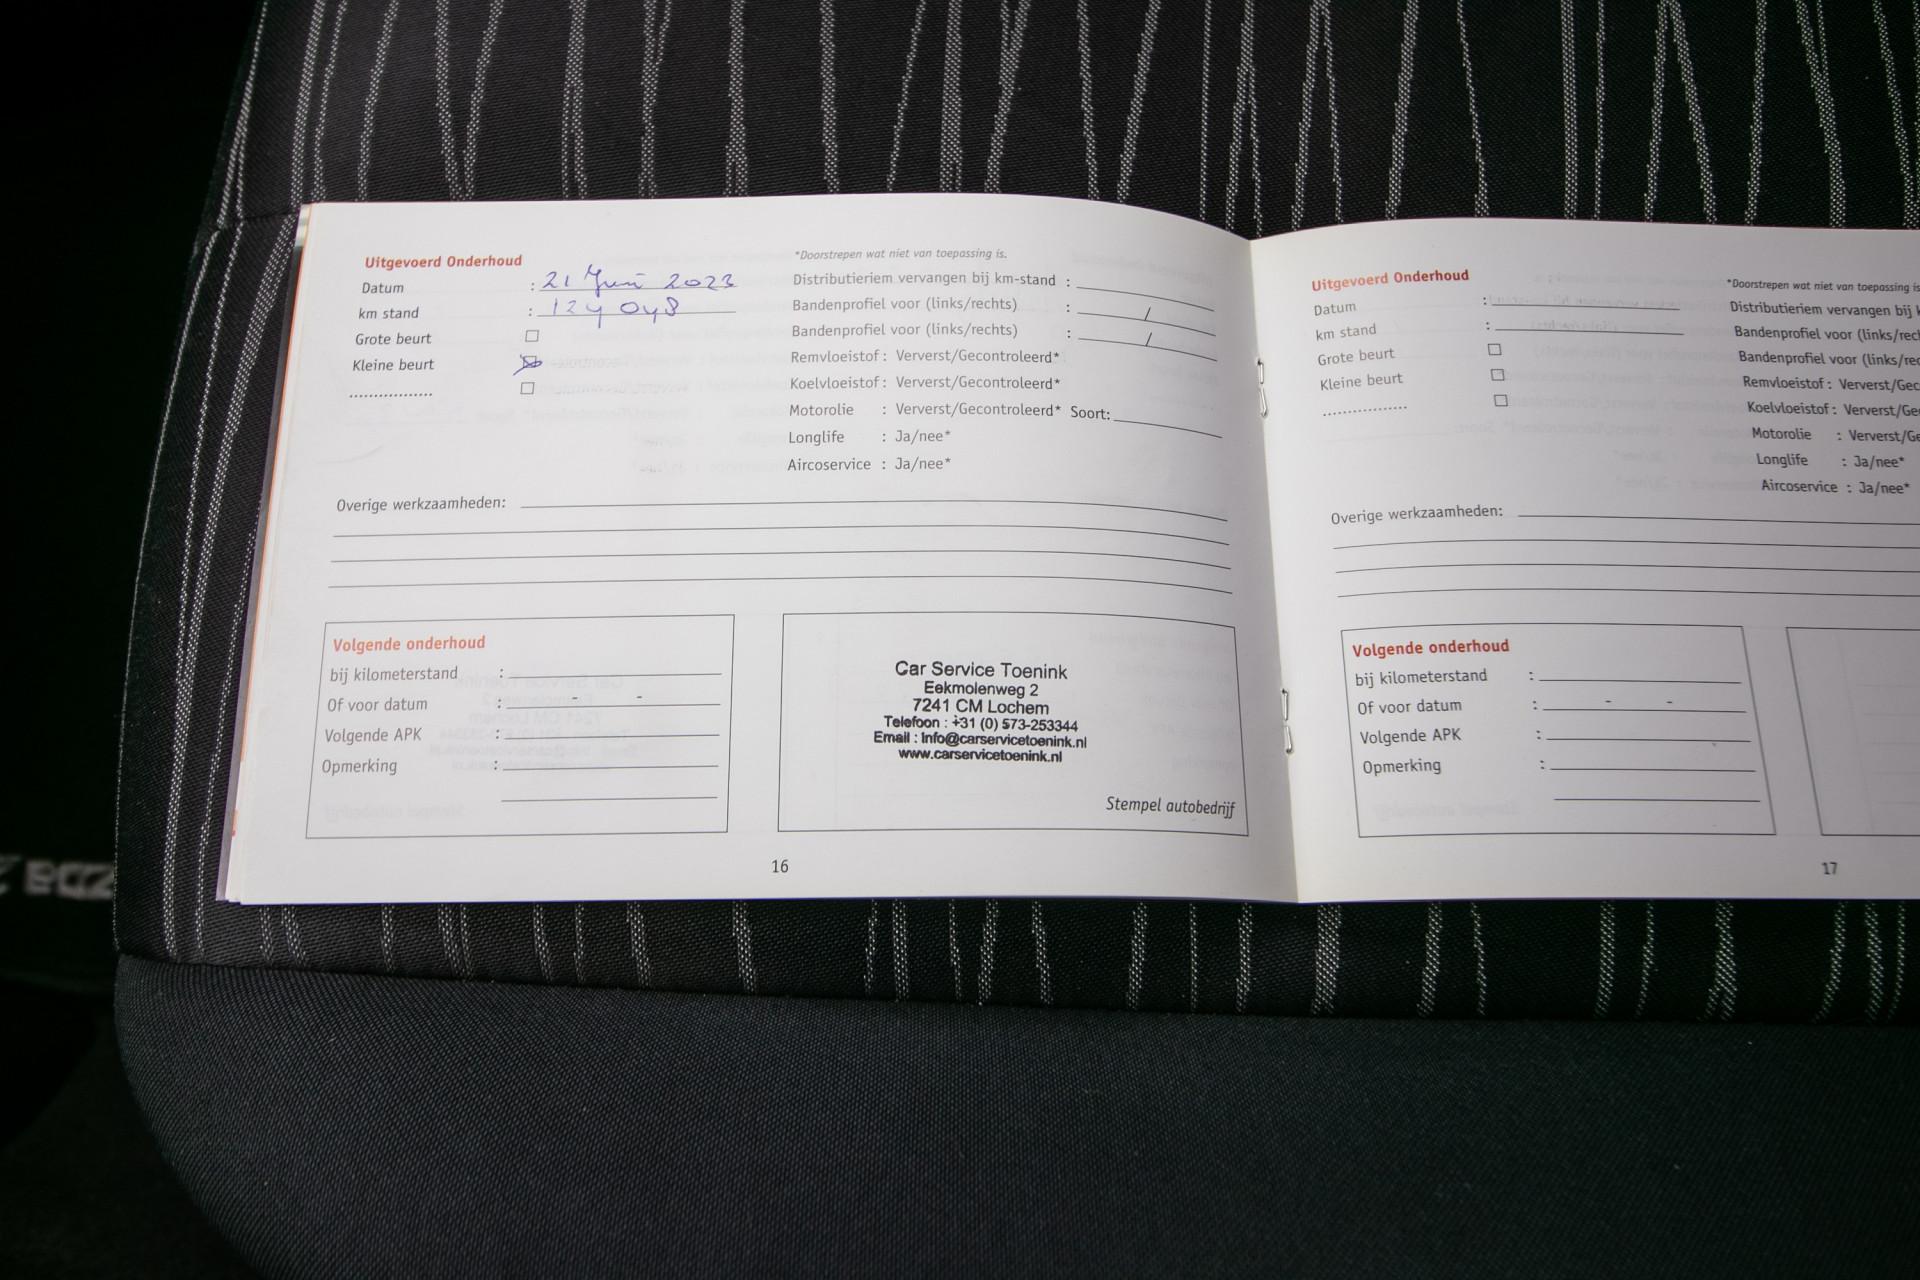 Uitgevoerd Onderhoud
Datum : 21 Juni 2023
km stand : 124 048
Grote beurt
Kleine beurt
.................
*Doorstrepen wat niet van toepassing is.
Distributieriem vervangen bij km-stand :
Bandenprofiel voor (links/rechts) : /
Bandenprofiel voor (links/rechts) : /
Remvloeistof : Ververst/Gecontroleerd*
Koelvloeistof : Ververst/Gecontroleerd*
Motorolie : Ververst/Gecontroleerd* Soort:
Longlife : Ja/nee*
Aircoservice : Ja/nee*
Overige werkzaamheden:
Volgende onderhoud
bij kilometerstand :
Of voor datum : - -
Volgende APK :
Opmerking :
Car Service Toenink
Eekmolenweg 2
7241 CM Lochem
Telefoon : +31 (0) 573-253344
Email : Info@carservicetoenink.nl
www.carservicetoenink.nl
Stempel autobedrijf
16
Uitgevoerd Onderhoud
Datum :
km stand :
Grote beurt
Kleine beurt
.................
*Doorstrepen wat niet van toepassing is
Distributieriem vervangen bij k
Bandenprofiel voor (links/rech
Bandenprofiel voor (links/rec
Remvloeistof : Ververst/Gec
Koelvloeistof : Ververst/Ge
Motorolie : Ververst/Ge
Longlife : Ja/nee*
Aircoservice : Ja/nee*
Overige werkzaamheden:
Volgende onderhoud
bij kilometerstand :
Of voor datum : - -
Volgende APK :
Opmerking :
17